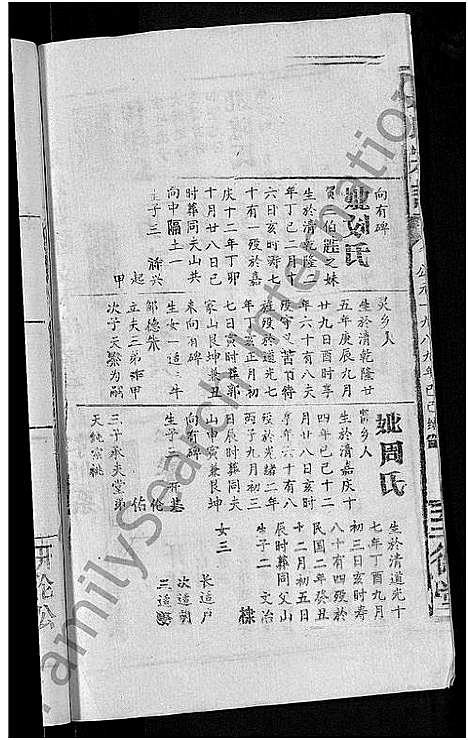 向有碑
妣刘氏
贸伯胜之妹
生於清乾隆二
年丁巳二月十
六日亥时寿七
十有一殁於嘉
庆十二年丁卯
十月廿八日巳
时葬同夫山共
向中隔土一
生子三
兴
起
甲
灵乡人
生於清乾隆廿
五年庚辰九月
廿九日酉时享
年六十有八夫
殁守义苦百待
旌殁於道光七
年丁亥正月初
七日寅时葬郭
家山艮坤兼丑
未向有碑
生女一适
邹德朱
立夫三弟
次子天黎为嗣
妣周氏
贸乡人
生於清嘉庆十
四年己巳十二
月廿八日亥时
享年六十有八
殁於光绪二年
丙子九月初三
日辰时葬同夫
山申寅兼艮坤
向有碑
生子三
开基
伦
佑
三子承夫堂弟
天纯宗祧
生於清道光十
七年丁酉九月
初三日亥时寿
八十有四殁於
民国二年癸丑
十二月初五日
辰时葬同父山
生子二
文治
棣
女三
长适卢
次适胡
三适
公元一九八九年己巳续
三德堂
FamilySearch International